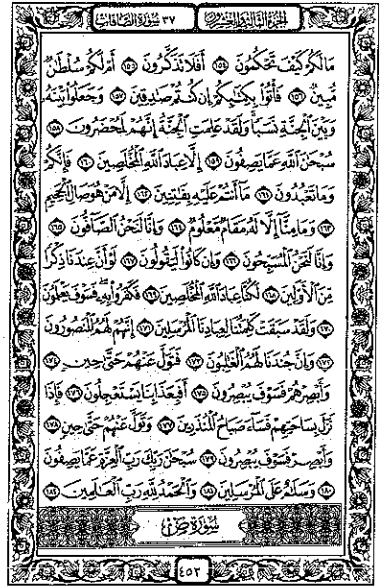 الجزء الثالث والعشرون ٣٧ سورة الصافات
مَا لَكُمْ كَيْفَ تَحْكُمُونَ ١٥٤ أَفَلَا تَذَكَّرُونَ ١٥٥ أَمْ لَكُمْ سُلْطَٰنٌ
مُّبِينٌ ١٥٦ فَأْتُوا۟ بِكِتَٰبِكُمْ إِن كُنتُمْ صَٰدِقِينَ ١٥٧ وَجَعَلُوا۟ بَيْنَهُۥ
وَبَيْنَ ٱلْجِنَّةِ نَسَبًا وَلَقَدْ عَلِمَتِ ٱلْجِنَّةُ إِنَّهُمْ لَمُحْضَرُونَ ١٥٨
سُبْحَٰنَ ٱللَّهِ عَمَّا يَصِفُونَ ١٥٩ إِلَّا عِبَادَ ٱللَّهِ ٱلْمُخْلَصِينَ ١٦٠ فَإِنَّكُمْ
وَمَا تَعْبُدُونَ ١٦١ مَآ أَنتُمْ عَلَيْهِ بِفَٰتِنِينَ ١٦٢ إِلَّا مَنْ هُوَ صَالِ ٱلْجَحِيمِ
١٦٣ وَمَا مِنَّآ إِلَّا لَهُۥ مَقَامٌ مَّعْلُومٌ ١٦٤ وَإِنَّا لَنَحْنُ ٱلصَّآفُّونَ ١٦٥
وَإِنَّا لَنَحْنُ ٱلْمُسَبِّحُونَ ١٦٦ وَإِن كَانُوا۟ لَيَقُولُونَ ١٦٧ لَوْ أَنَّ عِندَنَا ذِكْرًا
مِّنَ ٱلْأَوَّلِينَ ١٦٨ لَكُنَّا عِبَادَ ٱللَّهِ ٱلْمُخْلَصِينَ ١٦٩ فَكَفَرُوا۟ بِهِۦ فَسَوْفَ يَعْلَمُونَ
١٧٠ وَلَقَدْ سَبَقَتْ كَلِمَتُنَا لِعِبَادِنَا ٱلْمُرْسَلِينَ ١٧١ إِنَّهُمْ لَهُمُ ٱلْمَنصُورُونَ
١٧٢ وَإِنَّ جُندَنَا لَهُمُ ٱلْغَٰلِبُونَ ١٧٣ فَتَوَلَّ عَنْهُمْ حَتَّىٰ حِينٍ ١٧٤
وَأَبْصِرْهُمْ فَسَوْفَ يُبْصِرُونَ ١٧٥ أَفَبِعَذَابِنَا يَسْتَعْجِلُونَ ١٧٦ فَإِذَا
نَزَلَ بِسَاحَتِهِمْ فَسَآءَ صَبَاحُ ٱلْمُنذَرِينَ ١٧٧ وَتَوَلَّ عَنْهُمْ حَتَّىٰ حِينٍ ١٧٨
وَأَبْصِرْ فَسَوْفَ يُبْصِرُونَ ١٧٩ سُبْحَٰنَ رَبِّكَ رَبِّ ٱلْعِزَّةِ عَمَّا يَصِفُونَ
١٨٠ وَسَلَٰمٌ عَلَى ٱلْمُرْسَلِينَ ١٨١ وَٱلْحَمْدُ لِلَّهِ رَبِّ ٱلْعَٰلَمِينَ ١٨٢
سورة ص
٤٥٣